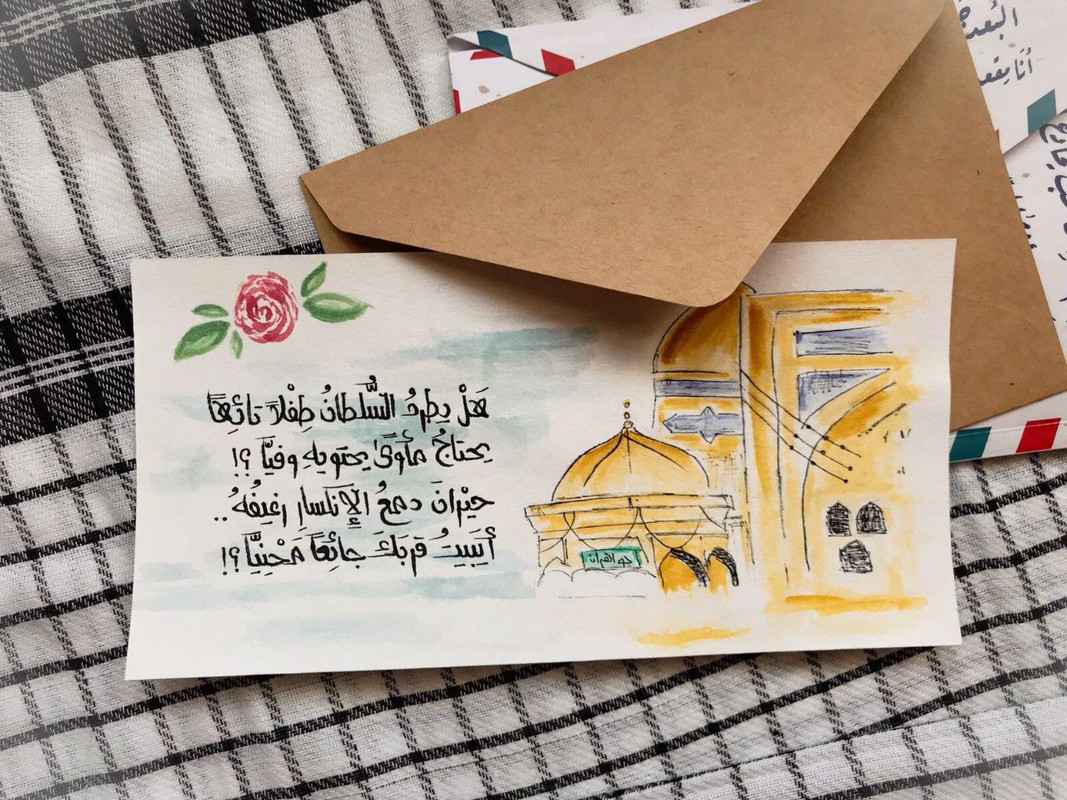 هَلْ يطردُ السُّلطانُ طِفْلاً تائِهاً
يحتاجُ مأوىً يحتويهِ وفيَّا ؟!
حيْرانَ دمعُ الإنكسارِ رغيفُهُ ..
أيَبيتُ قربكَ جائِعاً مَحْنِيَّا ؟!
خواهران
البُعد
أنا بقعة